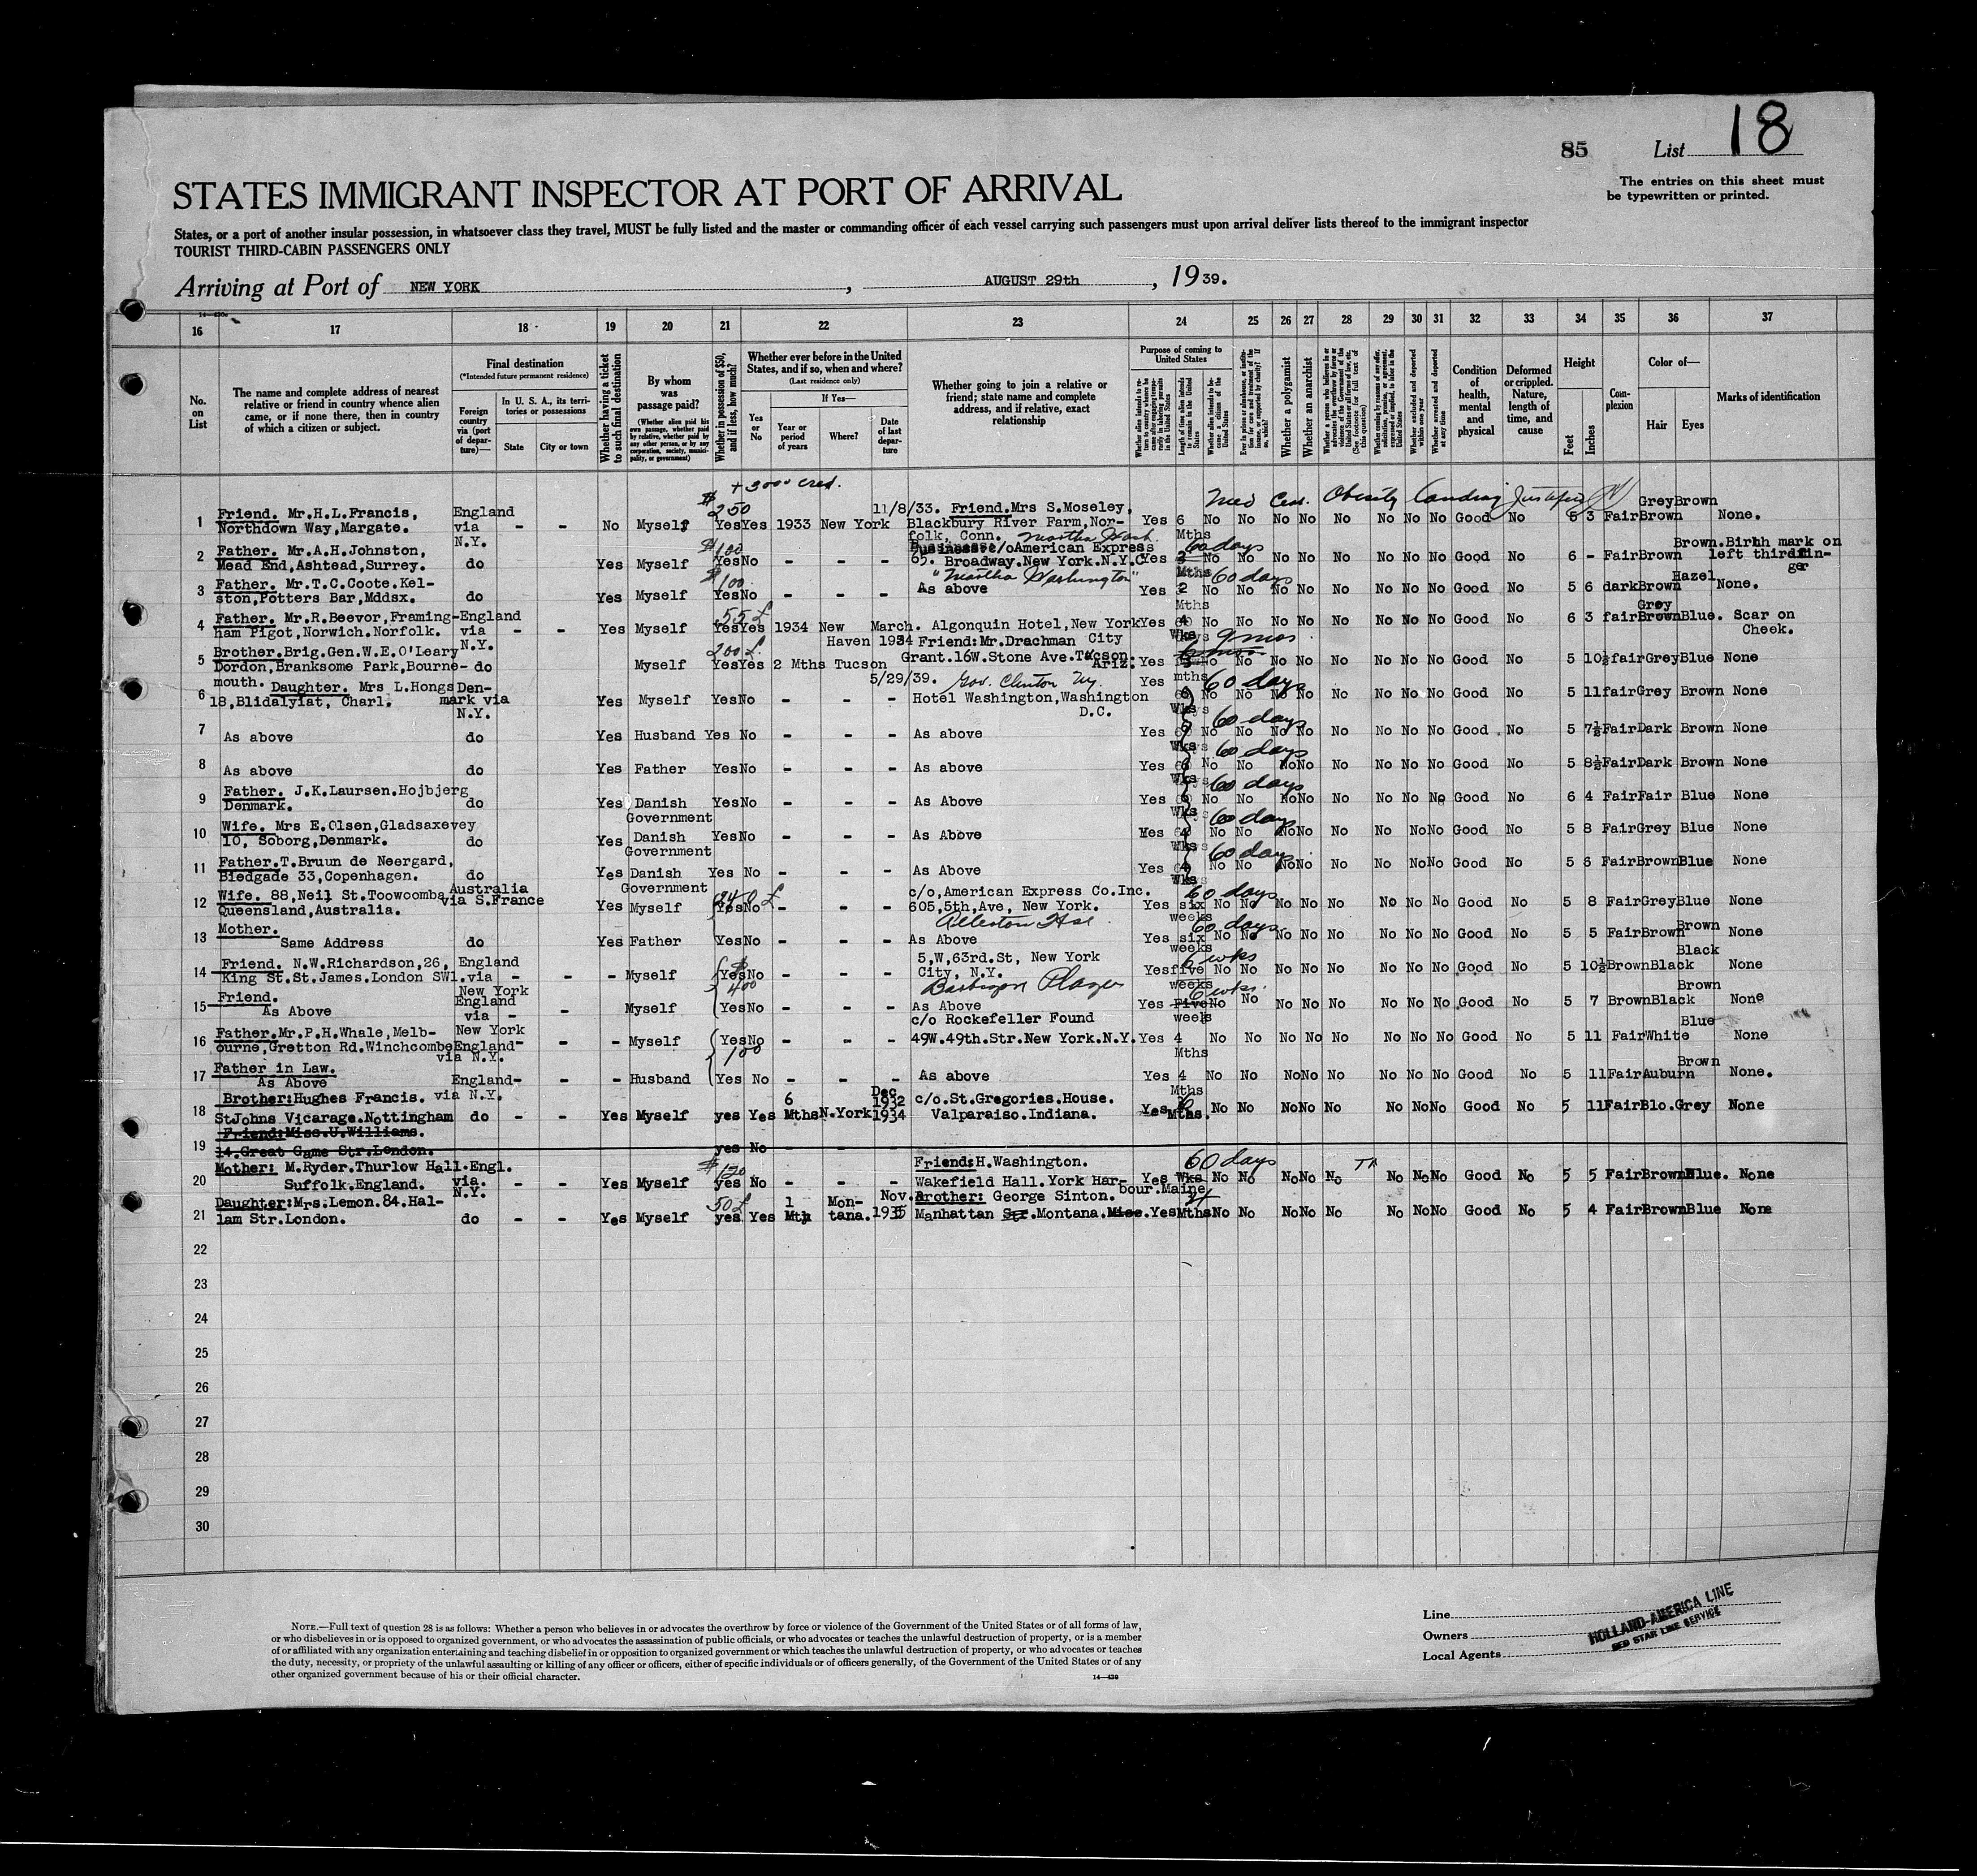 85 List 18
The entries on this sheet must
be typewritten or printed.
STATES IMMIGRANT INSPECTOR AT PORT OF ARRIVAL
States, or a port of another insular possession, in whatsoever class they travel, MUST be fully listed and the master or commanding officer of each vessel carrying such passengers must upon arrival deliver lists thereof to the immigrant inspector
TOURIST THIRD-CABIN PASSENGERS ONLY
Arriving at Port of NEW YORK , AUGUST 29th , 1939.
16 17 18 19 20 21 22 23 24 25 26 27 28 29 30 31 32 33 34 35 36 37
No. on List
The name and complete address of nearest relative or friend in country whence alien came, or if none there, then in country of which a citizen or subject.
Final destination
(*Intended future permanent residence)
Foreign country via (port of departure)—
In U. S. A., its territories or possessions
State
City or town
Whether having a ticket to such final destination
By whom was passage paid?
(Whether alien paid his own passage, whether paid by relative, whether paid by any other person, or by any corporation, society, municipality, or government)
Whether in possession of $50, and if less, how much?
Whether ever before in the United States, and if so, when and where?
(Last residence only)
Yes or No
If Yes—
Year or period of years
Where?
Date of last departure
Whether going to join a relative or friend; state name and complete address, and if relative, exact relationship
Purpose of coming to United States
Length of time alien intends to remain in the United States
Whether a polygamist
Whether an anarchist
(See footnote for full text of this question)
Whether arrested and deported at any time
Condition of health, mental and physical
Deformed or crippled. Nature, length of time, and cause
Height
Feet
Inches
Complexion
Color of—
Hair
Eyes
Marks of identification
+ 3000 cred.
Med Cert. Obesity landing
1 Friend. Mr.H.L.Francis, Northdown Way,Margate. England via N.Y. - - No Myself $250 Yes Yes 1933 New York 11/8/33. Friend.Mrs S.Moseley, Blackbury River Farm,Norfolk, Conn. Yes 6 Mths No No No No No No No No Good No 5 3 Fair Grey Brown Brown None.
2 Father. Mr.A.H.Johnston, Mead End,Ashtead,Surrey. do Yes Myself $100 Yes No - - - c/oAmerican Express 65. Broadway.New York.N.Y.C Martha Wash. Yes 60 days No No No No No No No No Good No 6 - Fair Brown Brown. Birth mark on left third finger
3 Father. Mr.T.C.Coote.Kelston,Potters Bar,Mddsx. do Yes Myself $100. Yes No - - - "Martha Washington" As above Yes 2 Mths 60 days No No No No No No No No Good No 5 6 dark Brown Hazel None.
4 Father. Mr.R.Beevor,Framingham Pigot,Norwich.Norfolk. England via N.Y. - - Yes Myself 55£ Yes Yes 1934 New Haven March. 1934 Algonquin Hotel,New York City Yes No No No No No No No No Good No 6 3 fair Brown Grey Blue. Scar on Cheek.
5 Brother.Brig.Gen.W.E.O'Leary Dordon,Branksome Park,Bournemouth. do Myself 200£. Yes Yes 2 Mths Tucson 5/29/39. Friend:Mr.Drachman Grant.16W.Stone Ave.Tucson. Ariz. Yes 9 mos. mths No No No No No No No No Good No 5 10½ fair Grey Blue None
6 Daughter. Mrs L.Hongs 18,Blidalyiat, Charl. Denmark via N.Y. Yes Myself Yes No - - - Gov. Clinton Ny. Hotel Washington,Washington D.C. Yes 60 days No No No No No No No No Good No 5 11 fair Grey Brown None
7 As above do Yes Husband Yes No - - - As above Yes 60 days No No No No No No No No Good No 5 7½ Fair Dark Brown None
8 As above do Yes Father Yes No - - - As above Yes 60 days No No No No No No No Good No 5 8½ Fair Dark Brown None
9 Father. J.K.Laursen.Hojbjerg Denmark. do Yes Danish Government Yes No - - - As Above Yes 60 days No No No No No No No No Good No 6 4 Fair Fair Blue None
10 Wife. Mrs E.Olsen,Gladsaxevey 10, Soborg,Denmark. do Yes Danish Government Yes No - - - As Above Yes 60 days No No No No No No No No Good No 5 8 Fair Grey Blue None
11 Father.T.Bruun de Neergard, Bledgade 33,Copenhagen. do Yes Danish Government Yes No - - - As Above Yes 60 days No No No No No No No No Good No 5 6 Fair Brown Blue None
12 Wife. 88,Neil St.Toowcomba Queensland,Australia. Australia via S.France Yes Myself 240£ Yes No - - - c/o,American Express Co.Inc. 605,5th,Ave, New York. Allerton Hse Yes six weeks 60 days No No No No No No No No Good No 5 8 Fair Grey Blue None
13 Mother. Same Address do Yes Father Yes No - - - As Above Yes six weeks 60 days No No No No No No No No Good No 5 5 Fair Brown Brown None
14 Friend. N.W.Richardson,26, King St.St.James.London SW1. England via New York - - - Myself $400 Yes No - - - 5,W,63rd.St, New York City, N.Y. Barbizon Plaza Yes five weeks 6 wks No No No No No No No No Good No 5 10½ Brown Black Black None
15 Friend. As Above England via New York - - Myself Yes No - - - As Above Yes Five weeks 6 wks. No No No No No No No No Good No 5 7 Brown Black Brown None
16 Father.Mr.P.H.Whale,Melbourne,Gretton Rd.Winchcombe England via N.Y. - - - Myself 100 Yes No - - - c/o Rockefeller Found 49W.49th.Str.New York.N.Y. Yes 4 Mths No No No No No No No No Good No 5 11 Fair White Blue None
17 Father in Law. As Above England via N.Y. - - - Husband Yes No - - - As above Yes 4 Mths No No No No No No No No Good No 5 11 Fair Auburn Brown None.
18 Brother:Hughes Francis. StJohns Vicarage.Nottingham do - - Yes Myself yes Yes 6 Mths N.York Dec 1932 1934 c/o.St.Gregories.House. Valparaiso.Indiana. Yes Mths. No No No No No No No No Good No 5 11 Fair Blo. Grey None
19 Friend:Miss.U.Williams. 14.Great Game Str.London. yes No
20 Mother: M.Ryder.Thurlow Hall.Engl. Suffolk.England. via. N.Y. - - Yes Myself $120 yes No - - - Friend:H.Washington. Wakefield Hall.York Harbour.Maine Yes Wks 60 days No No No No No No No No Good No 5 5 Fair Brown Blue. None
21 Daughter:Mrs.Lemon.84.Hallam Str.London. do - - Yes Myself 50£ yes Yes 1 Mth Montana. Nov. 1935 Brother: George Sinton. Manhattan Str.Montana. Yes Mths No No No No No No No No Good No 5 4 Fair Brown Blue None
22
23
24
25
26
27
28
29
30
NOTE.—Full text of question 28 is as follows: Whether a person who believes in or advocates the overthrow by force or violence of the Government of the United States or of all forms of law,
or who disbelieves in or is opposed to organized government, or who advocates the assassination of public officials, or who advocates or teaches the unlawful destruction of property, or is a member
of or affiliated with any organization entertaining and teaching disbelief in or opposition to organized government or which teaches the unlawful destruction of property, or who advocates or teaches
the duty, necessity, or propriety of the unlawful assaulting or killing of any officer or officers, either of specific individuals or of officers generally, of the Government of the United States or of any
other organized government because of his or their official character.
14—430
Line
Owners
Local Agents
HOLLAND-AMERICA LINE
RED STAR LINE SERVICE